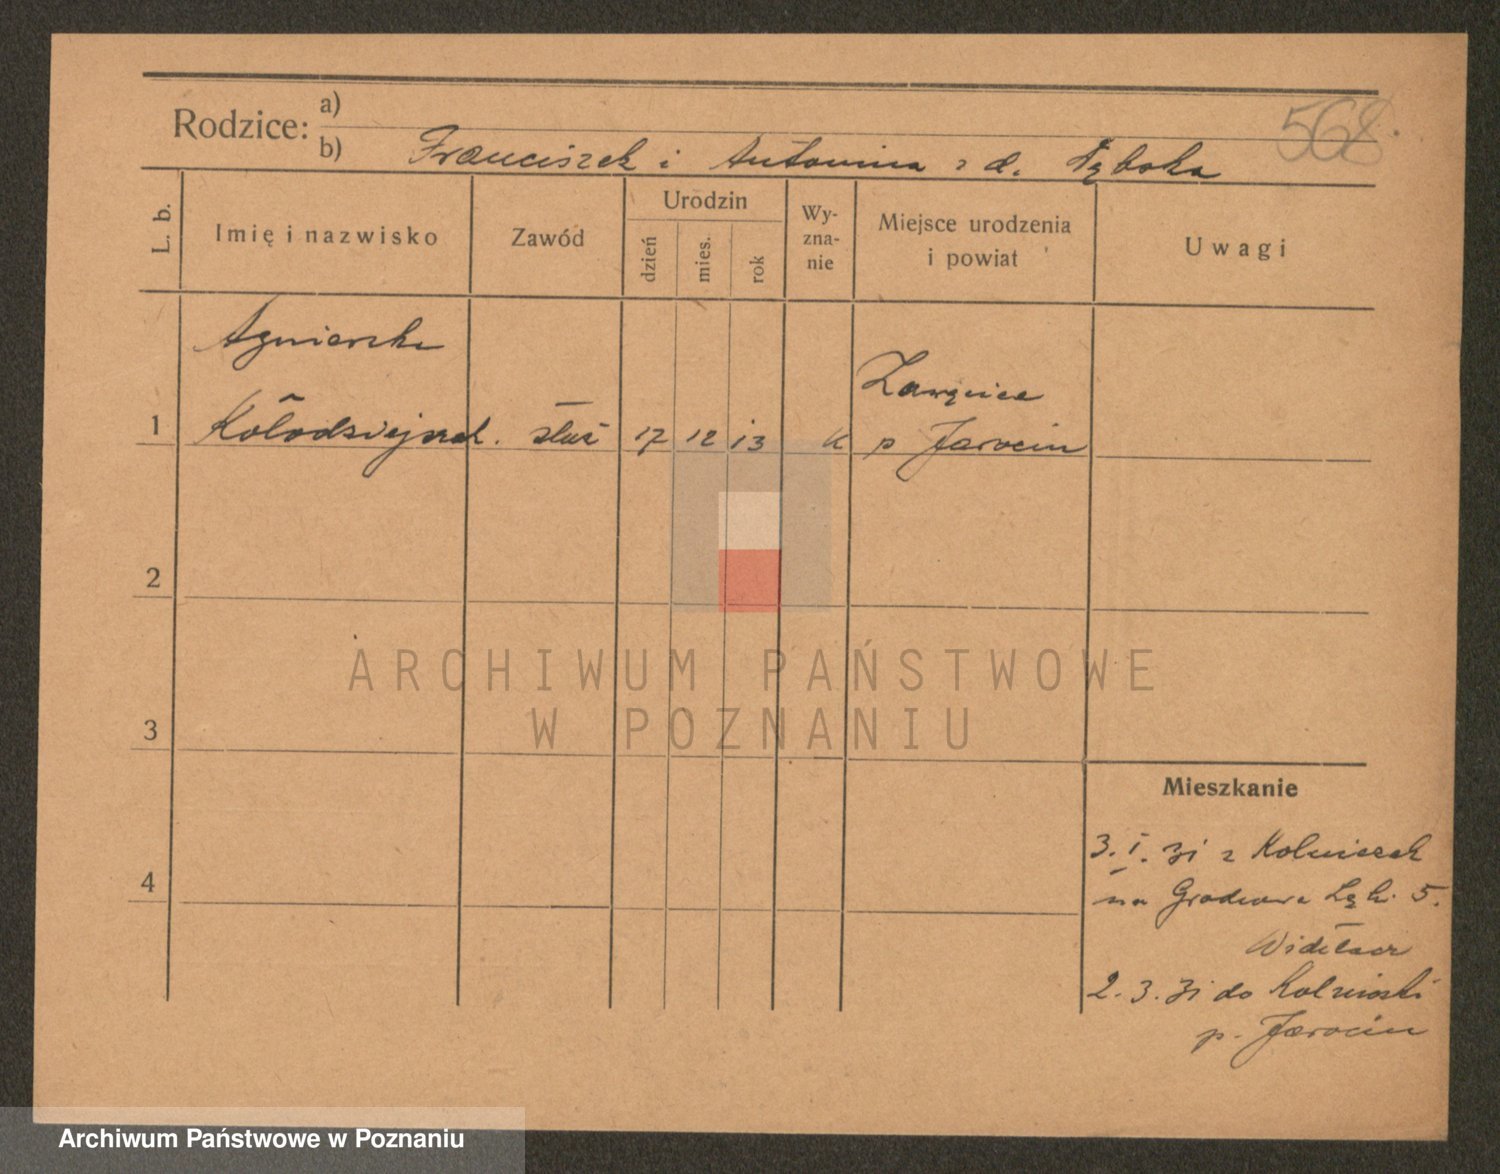 568.
Rodzice:
a)
b) Franciszek i Antonina z d.
L. b.
Imię i nazwisko
Zawód
Urodzin
dzień
mies.
rok
Wy-
zna-
nie
Miejsce urodzenia
i powiat
Uwagi
Agnieszka
1 Kołodziejczak służ 17 12 13 K
p Jarocin
2
3
4
ARCHIWUM PAŃSTWOWE
W POZNANIU
Mieszkanie
3. I. 31 z
na 5.
2. 3. 31 do
p. Jarocin
Archiwum Państwowe w Poznaniu